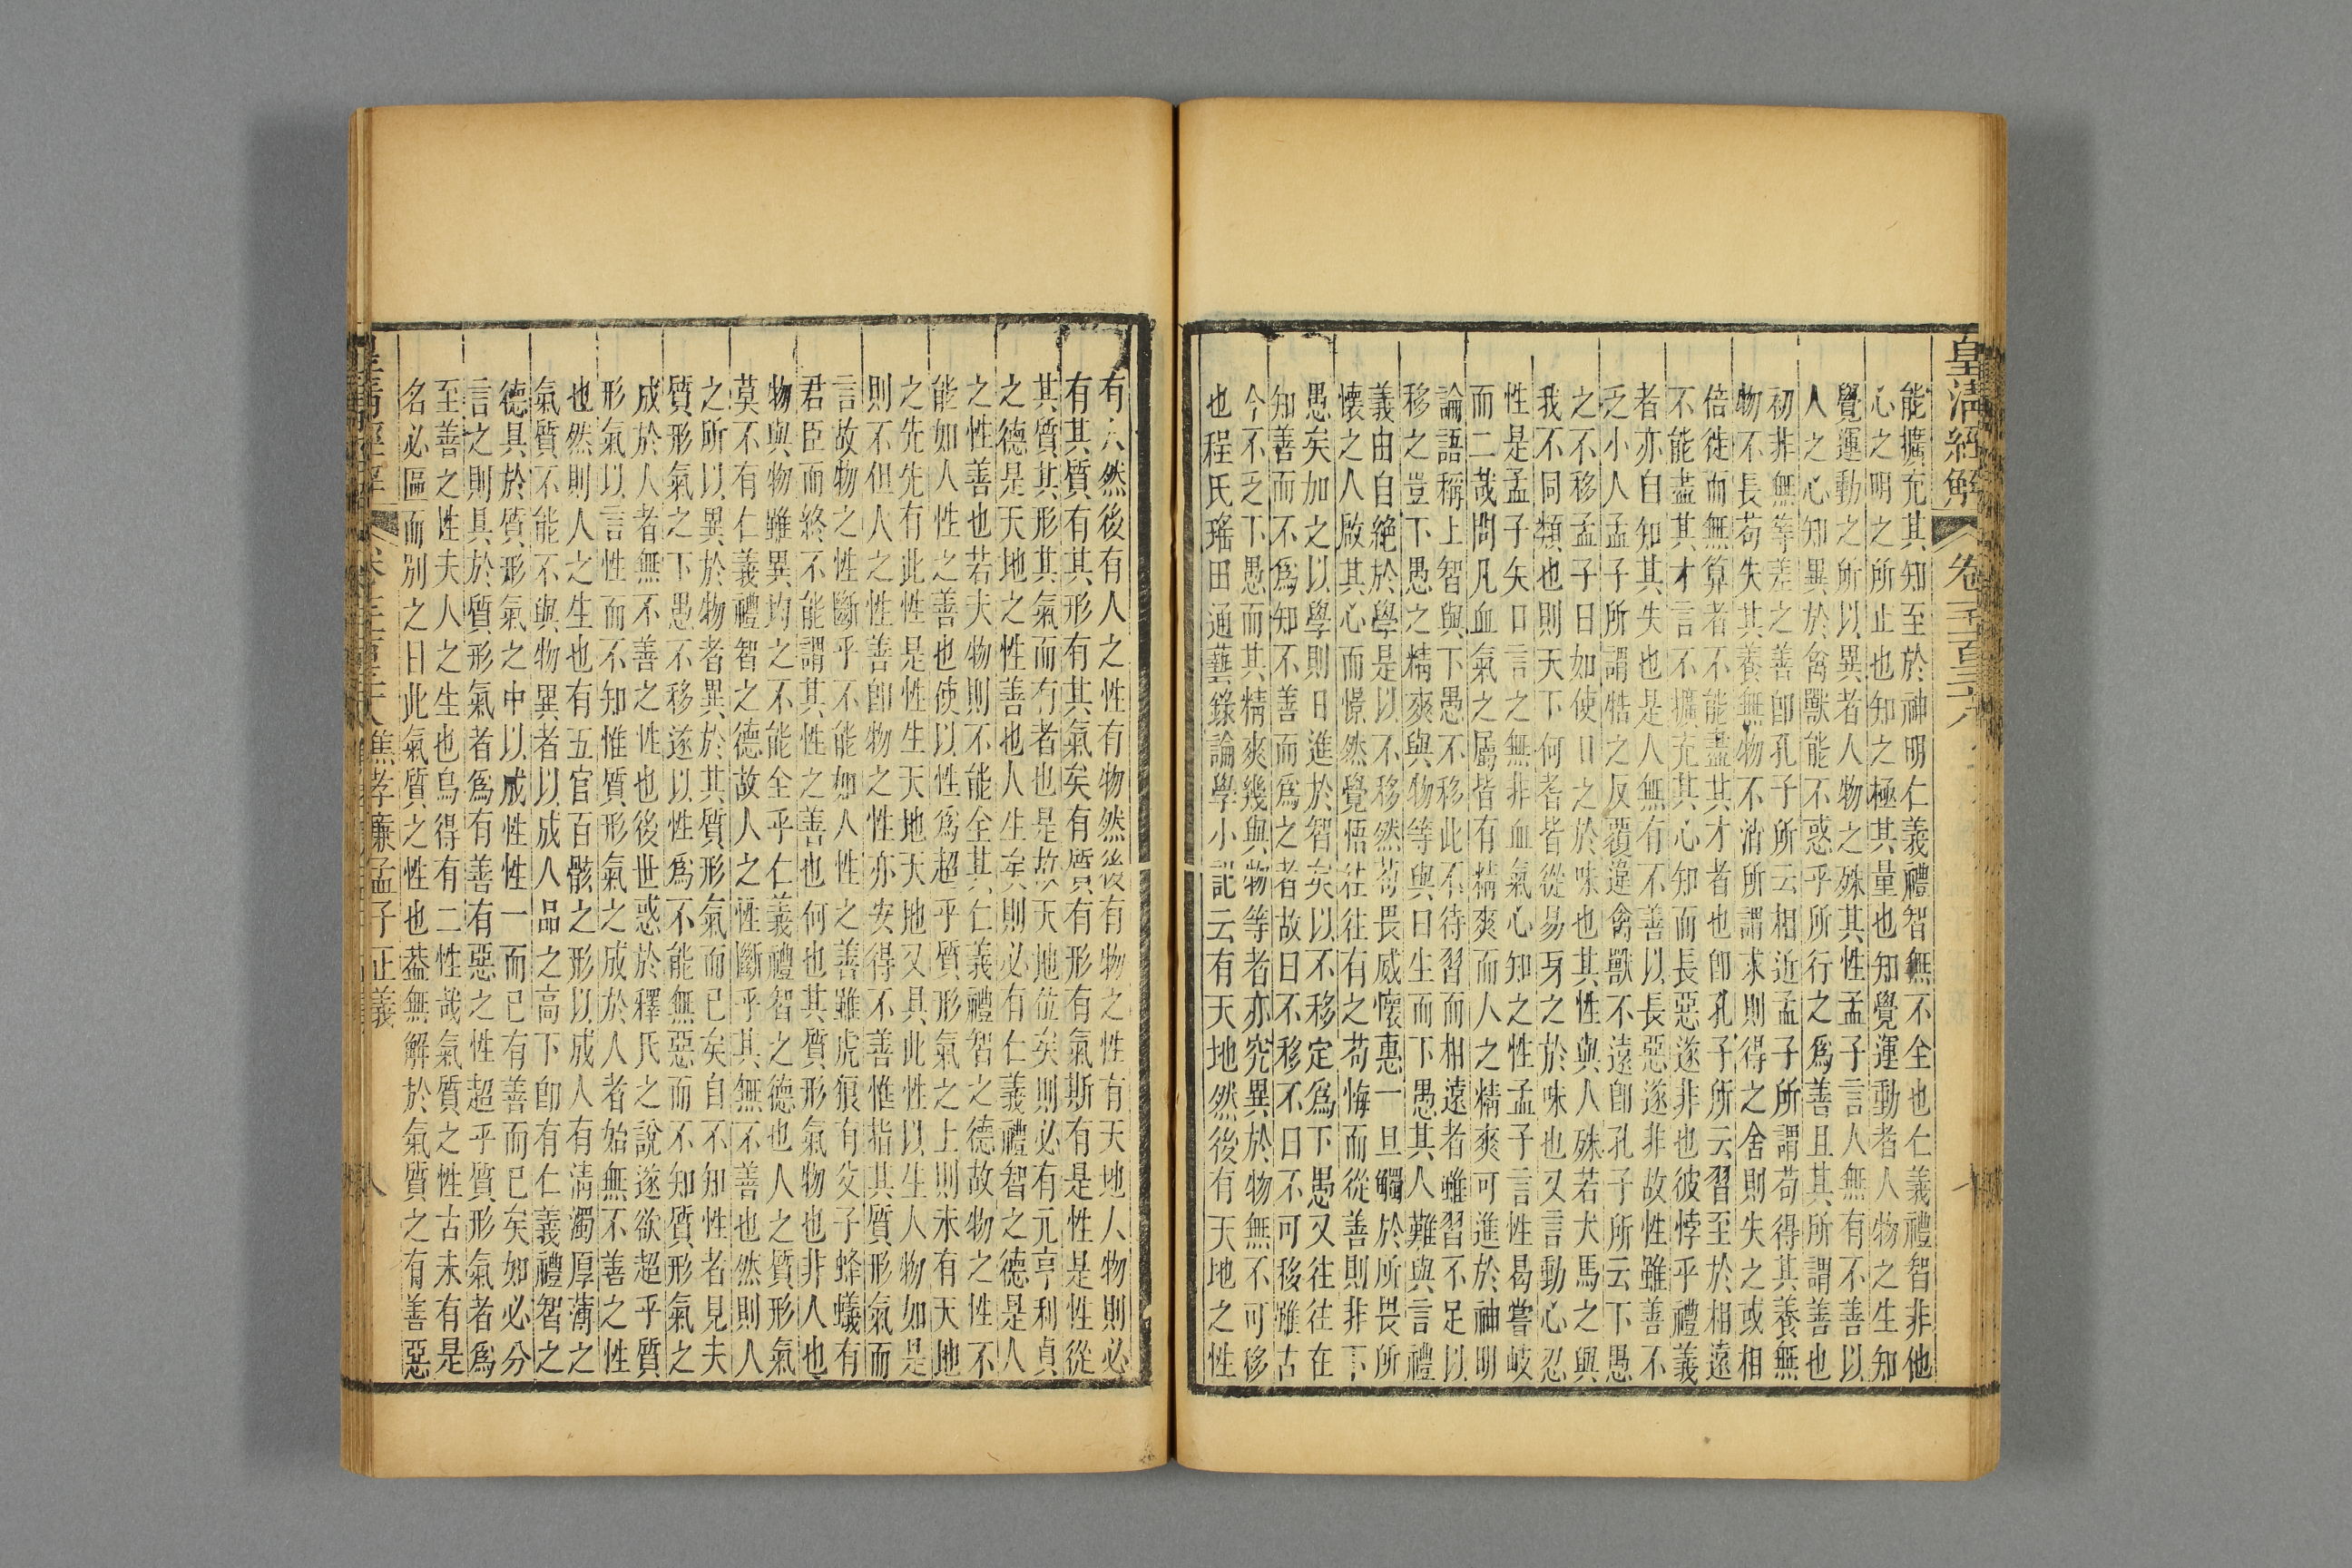 皇清經解
卷一千一百三十八
能擴充其知至於神明仁義禮智無不全也仁義禮智非他
心之明之所止也知之極其量也知覺運動者人物之生知
覺運動之所以異者人物之殊其性孟子言人無有不善以
人之心知異於禽獸能不惑乎所行之爲善且其所謂善也
初非無等差之善卽孔子所云相近孟子所謂苟得其養無
物不長苟失其養無物不消所謂求則得之舍則失之或相
倍徙而無算者不能盡其才者也卽孔子所云習至於相遠
不能盡其才言不擴充其心知而長惡遂非也彼悖乎禮義
者亦自知其失也是人無有不善以長惡遂非故性雖善不
乏小人孟子所謂牿之反覆違禽獸不遠卽孔子所云下愚
之不移孟子曰如使口之於味也其性與人殊若犬馬之與
我不同類也則天下何耆皆從易牙之於味也又言動心忍
性是孟子矢口言之無非血氣心知之性孟子言性曷嘗岐
而二哉問凡血氣之屬皆有精爽而人之精爽可進於神明
論語稱上智與下愚不移此不待習而相遠者雖習不足以
移之豈下愚之精爽與物等與曰生而下愚其人難與言禮
義由自絕於學是以不移然苟畏威懷惠一旦觸於所畏所
懷之人啟其心而憬然覺悟往往有之苟悔而從善則非下
愚矣加之以學則日進於智矣以不移定爲下愚又往往在
知善而不爲知不善而爲之者故曰不移不曰不可移雖古
今不乏下愚而其精爽幾與物等者亦究異於物無不可移
也程氏瑤田通藝錄論學小記云有天地然後有天地之性
有人然後有人之性有物然後有物之性有天地人物則必
有其質有其形有其氣矣有質有形有氣斯有是性是性從
其質其形其氣而有者也是故天地位矣則必有元亨利貞
之德是天地之性善也人生矣則必有仁義禮智之德是人
之性善也若夫物則不能全其仁義禮智之德故物之性不
能如人性之善也使以性爲超乎質形氣之上則未有天地
之先先有此性是性生天地天地又具此性以生人物如是
則不但人之性善卽物之性亦安得不善惟指其質形氣而
言故物之性斷乎不能如人性之善雖虎狼有父子蜂蟻有
君臣而終不能謂其性之善也何也其質形氣物也非人也
物與物雖異均之不能全乎仁義禮智之德也人之質形氣
莫不有仁義禮智之德故人之性斷乎其無不善也然則人
之所以異於物者異於其質形氣而已矣自不知性者見夫
質形氣之下愚不移遂以性爲不能無惡而不知質形氣之
成於人者無不善之性也後世惑於釋氏之說遂欲超乎質
形氣以言性而不知惟質形氣之成於人者始無不善之性
也然則人之生也有五官百骸之形以成人有清濁厚薄之
氣質不能不與物異者以成人品之高下卽有仁義禮智之
德具於質形氣之中以成性性一而已有善而已矣如必分
言之則具於質形氣者爲有善有惡之性超乎質形氣者爲
至善之性夫人之生也烏得有二性哉氣質之性古未有是
名必區而別之曰此氣質之性也葢無解於氣質之有善惡
焦孝廉孟子正義
八